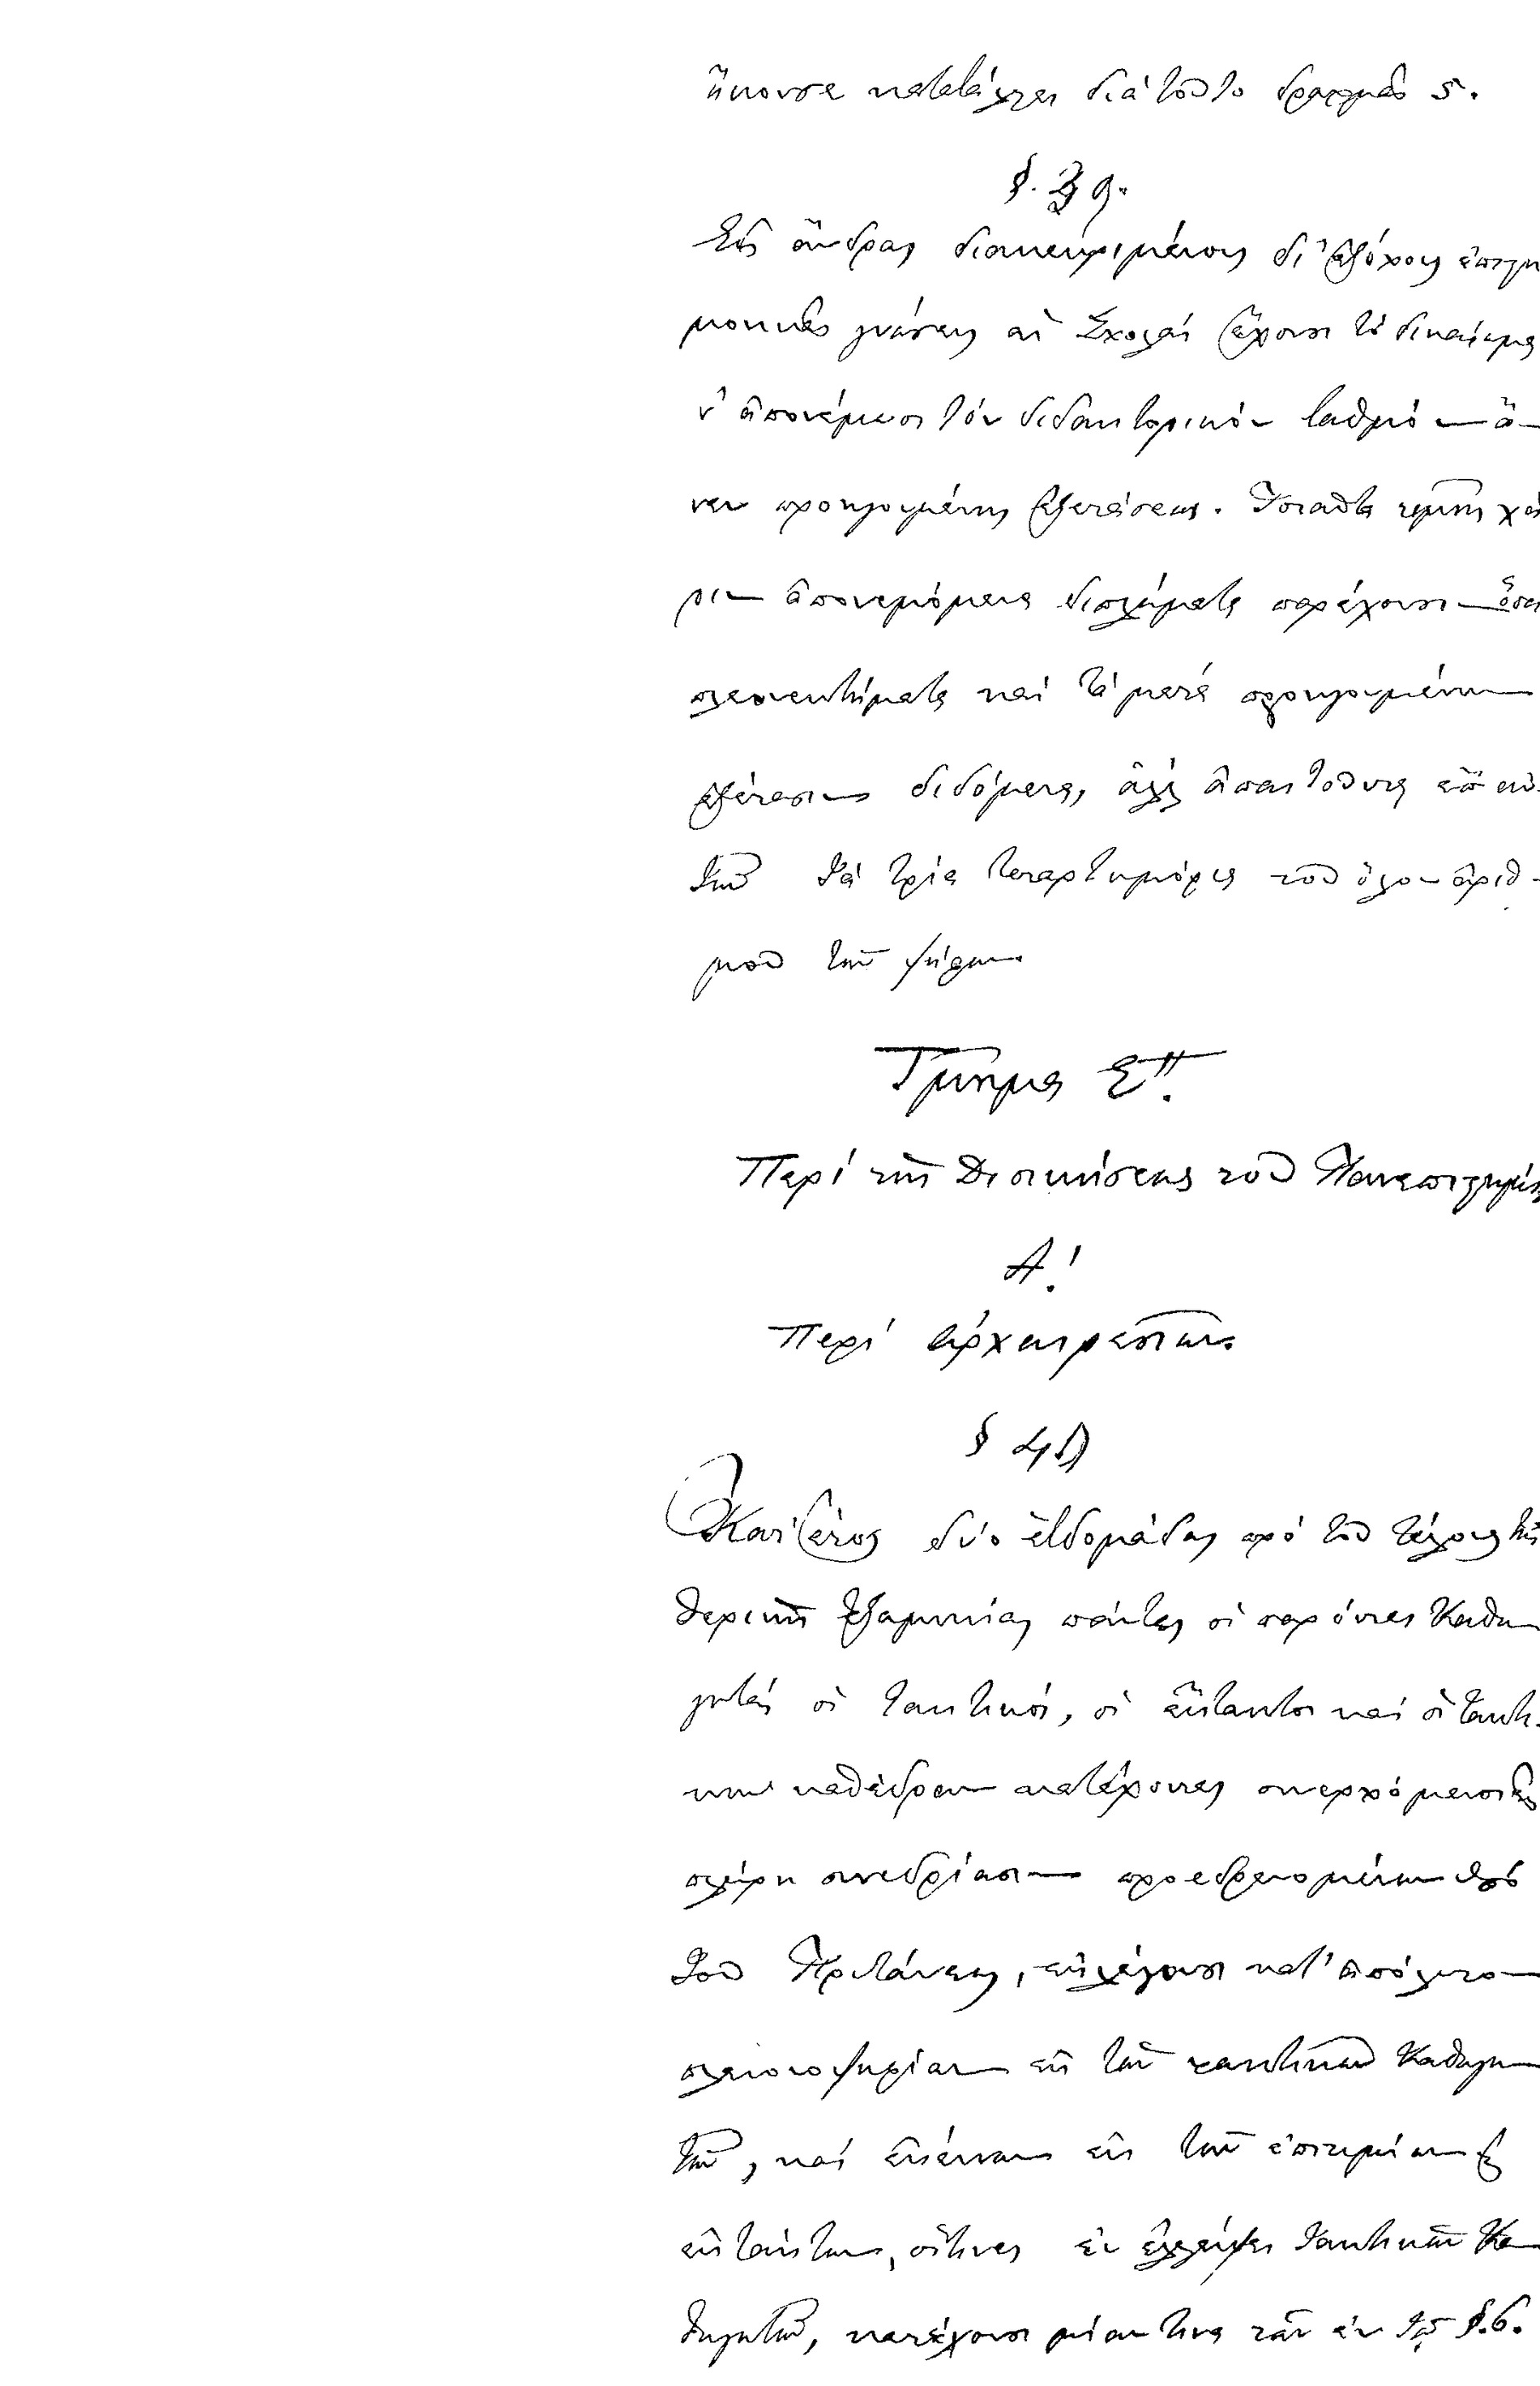 ἤκουσε καταβάλλει διὰ τοῦτο δραχμὰς 5.
§. 39.
Εἰς ἄνδρας διακεκριμένους δι' ἐξόχους ἐπιστη
μονικὰς γνώσεις αἱ Σχολαί ἔχουσι τὸ δικαίωμα
ν' ἀπονέμωσι τὸν διδακτορικὸν βαθμὸν ἄ-
νευ προηγουμένης ἐξετάσεως. Τοιαῦτα τιμῆς χά
ριν ἀπονεμόμενα διπλώματα παρέχουσιν ὅσα
πλεονεκτήματα καὶ τὰ μετὰ προηγουμένην
ἐξέτασιν διδόμενα, ἀλλ' ἀπαιτοῦνται ἐπ' αὐ-
τῶν τὰ τρία τεταρτημόρια τοῦ ὅλου ἀριθ-
μοῦ τῶν ψήφων.
Τμῆμα Ε''.
Περὶ τῆς Διοικήσεως τοῦ Πανεπιστημίου
Α'.
Περὶ ἀρχαιρεσιῶν.
§ 40
Κατ' ἔτος δύο ἑβδομάδας πρὸ τοῦ τέλους τῆς
θερινῆς ἑξαμηνίας πάντες οἱ παρόντες Καθη
γηταί οἱ τακτικοί, οἱ ἔκτακτοι καὶ οἱ τακτι-
κὴν καθέδραν κατέχοντες συνερχόμενοι εἰς
πλήρη συνεδρίασιν προεδρευομένην ὑπό
τοῦ Πρυτάνεως, ἐκλέγουσι κατ' ἀπόλυτον
πλειονοψηφίαν ἐκ τῶν τακτικῶν Καθηγη
τῶν, καὶ ἐκ τῶν ἐπιτιμίων ἢ
ἐκτάκτων, οἵτινες ἐν ἐλλείψει τακτικῶν Κα
θηγητῶν, κατέχουσι μίαν τινα τῶν ἐν τῷ §. 6.